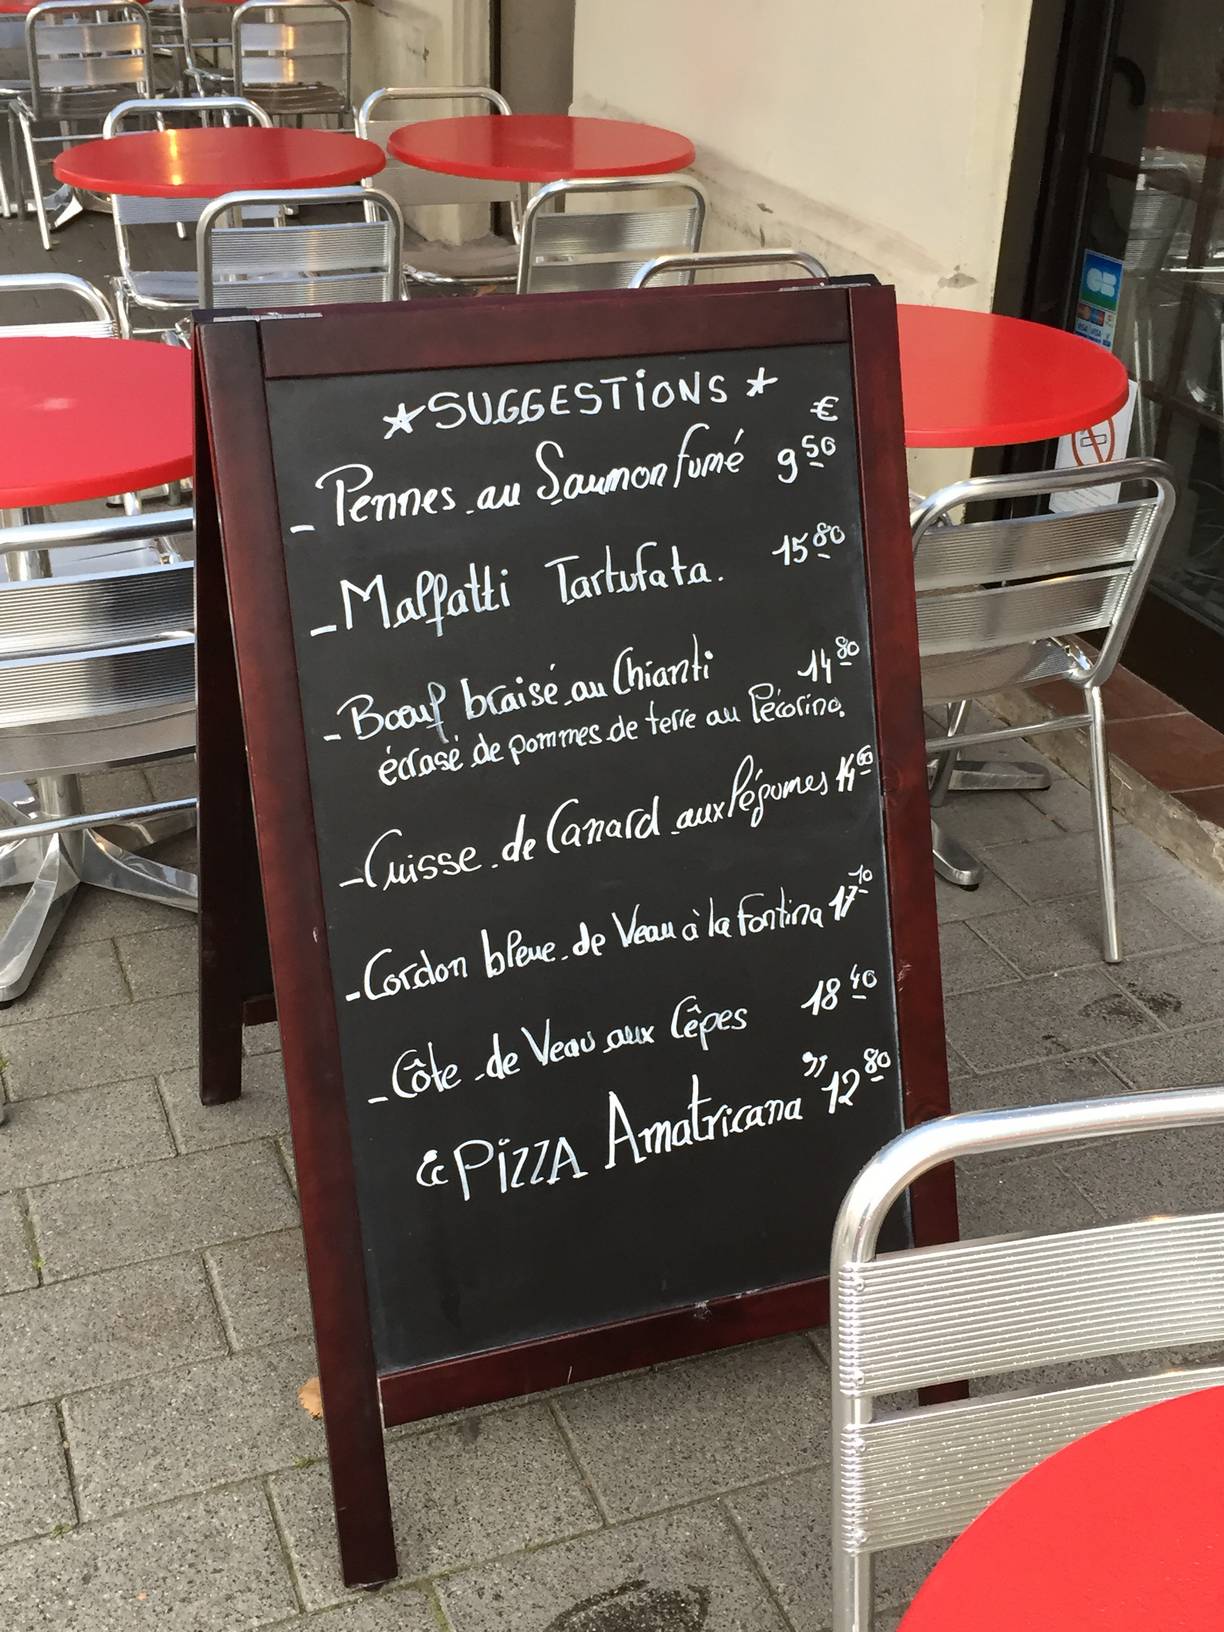 ★ SUGGESTIONS ★
€
- Pennes au Saumon fumé 9 50
- Malfatti Tartufata. 15 80
- Bœuf braisé au Chianti 14 80
écrasé de pommes de terre au Pécorino.
- Cuisse de Canard aux légumes 14 60
- Cordon bleue de Veau à la Fontina 17 10
- Côte de Veau aux Cêpes 18 40
" PIZZA Amatricana " 12 80
CB
VISA